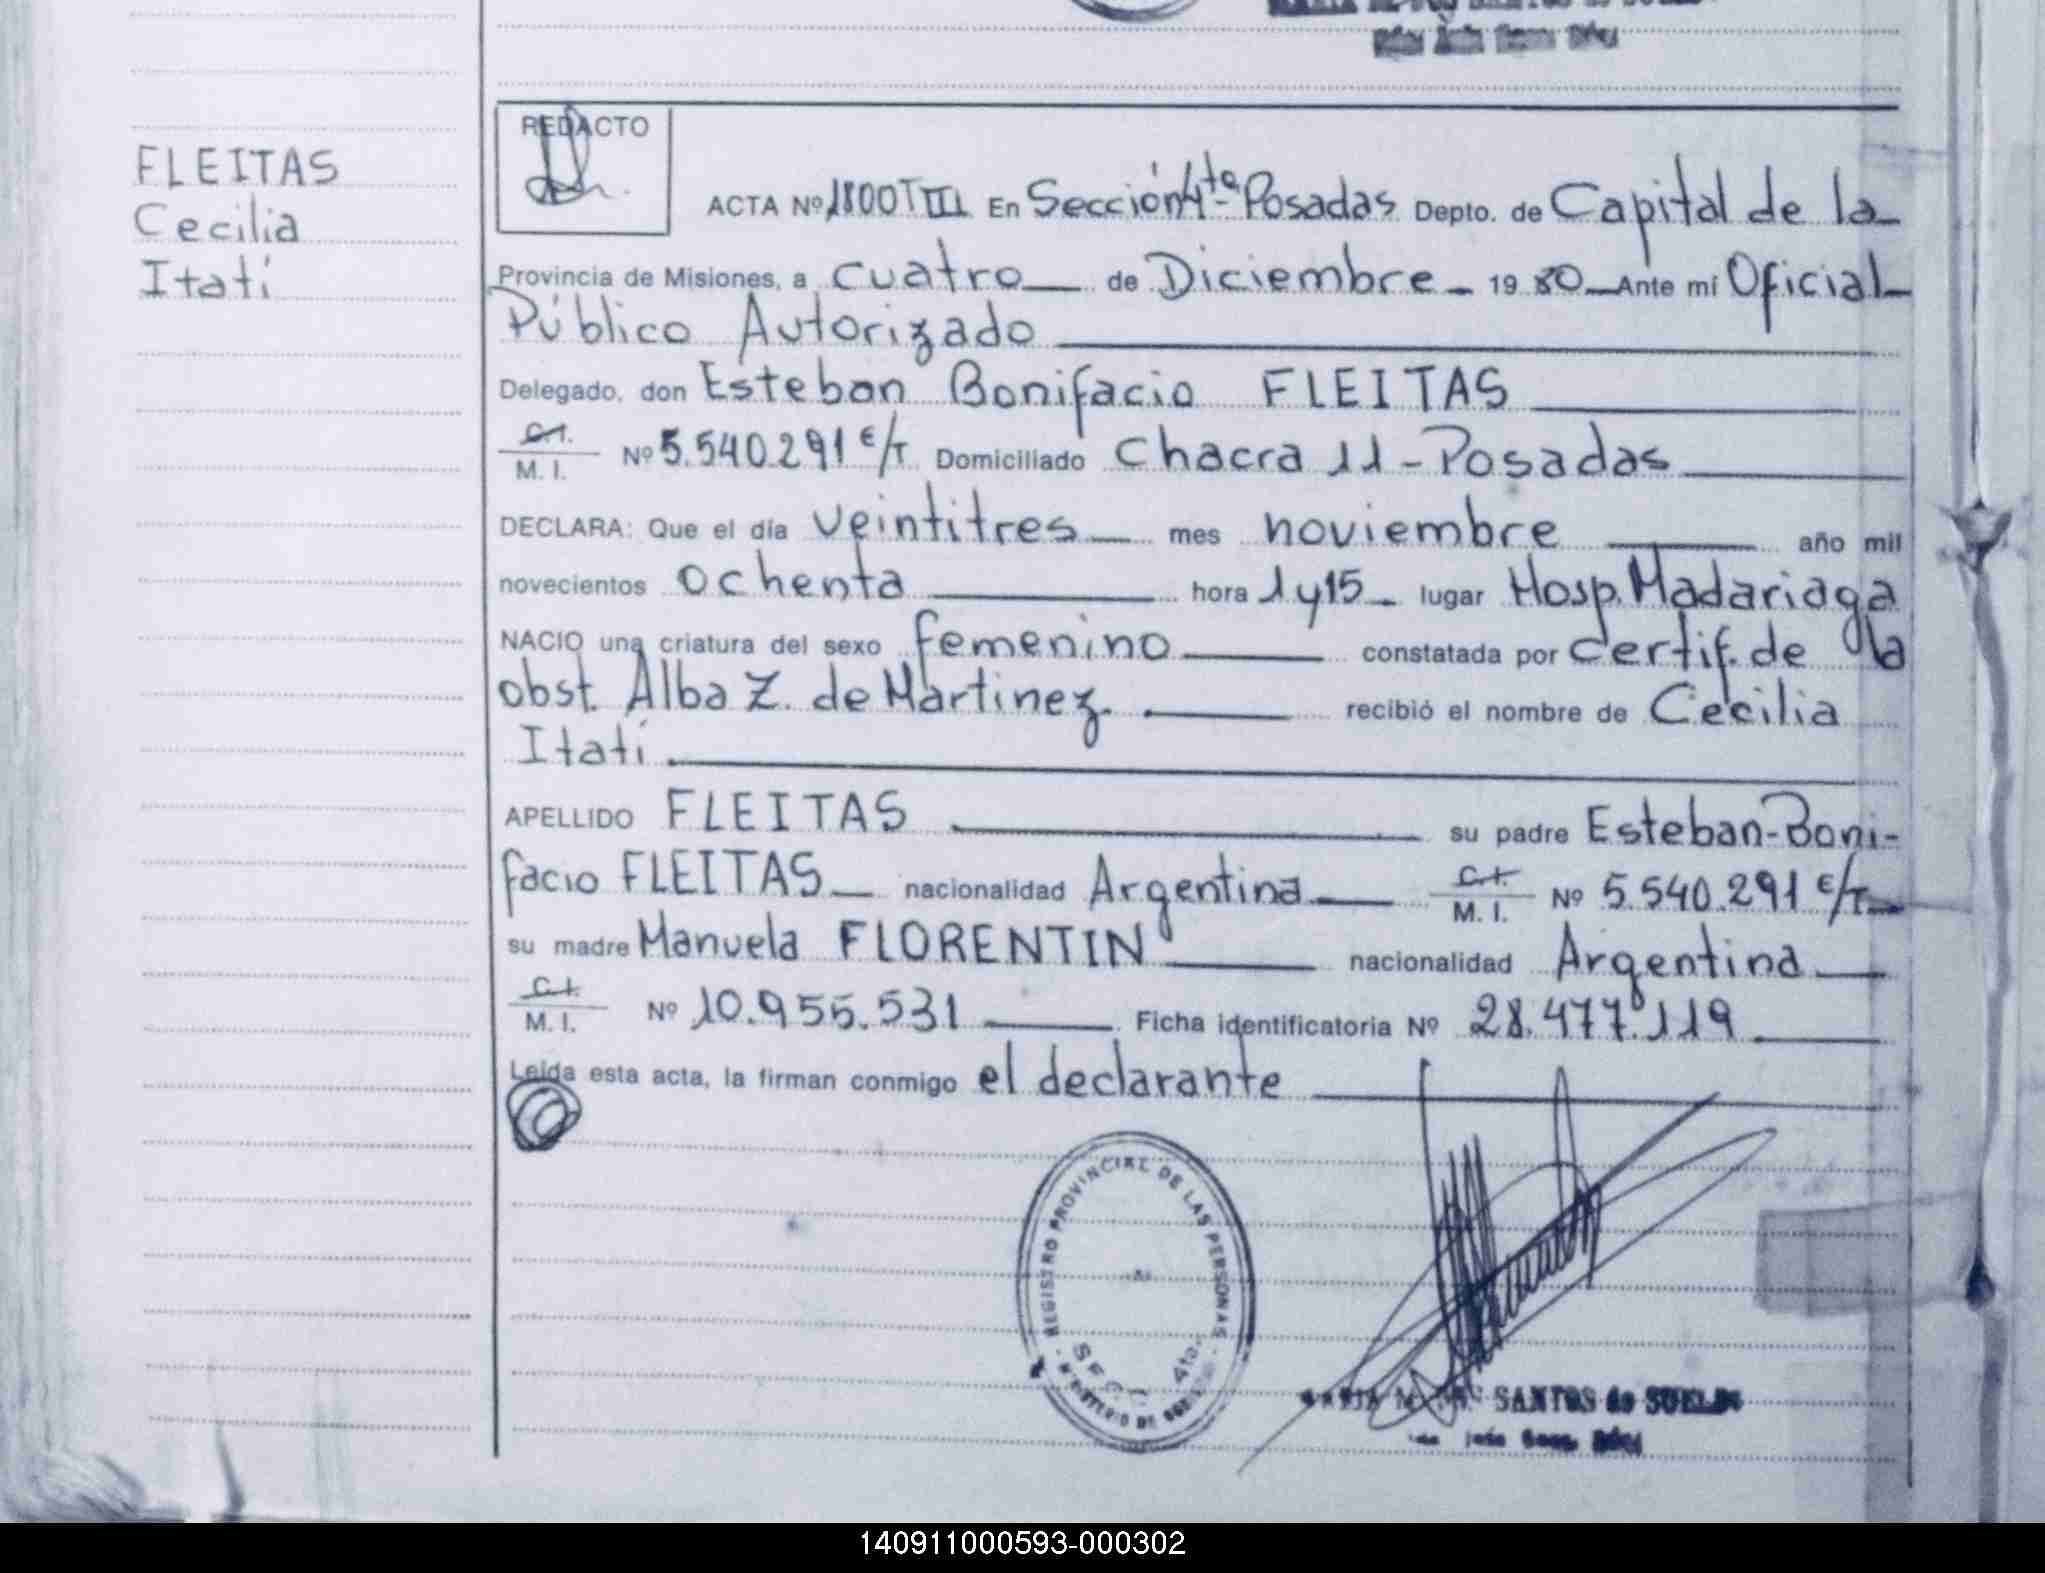 FLEITAS
Cecilia
Itatí
REDACTO
ACTA Nº 1800 T III En Sección 4ta Posadas Depto. de Capital de la
Provincia de Misiones, a cuatro de Diciembre 19 80 Ante mí Oficial
Público Autorizado
Delegado, don Esteban Bonifacio FLEITAS
C.I.
M. I. Nº 5.540.291 E/T Domiciliado Chacra 11 - Posadas
DECLARA: Que el día veintitres mes noviembre año mil
novecientos ochenta hora 1 y 15 lugar Hosp. Madariaga
NACIO una criatura del sexo femenino constatada por certif. de la
obst. Alba Z. de Martinez. recibió el nombre de Cecilia
Itatí
APELLIDO FLEITAS su padre Esteban-Boni-
facio FLEITAS nacionalidad Argentina C.I.
M. I. Nº 5.540.291 E/T
su madre Manuela FLORENTIN nacionalidad Argentina
C.I.
M. I. Nº 10.955.531 Ficha identificatoria Nº 28.477.119
Leída esta acta, la firman conmigo el declarante
REGISTRO PROVINCIAL DE LAS PERSONAS
MINISTERIO DE
4ta.
SANTOS de SUELDO
140911000593-000302